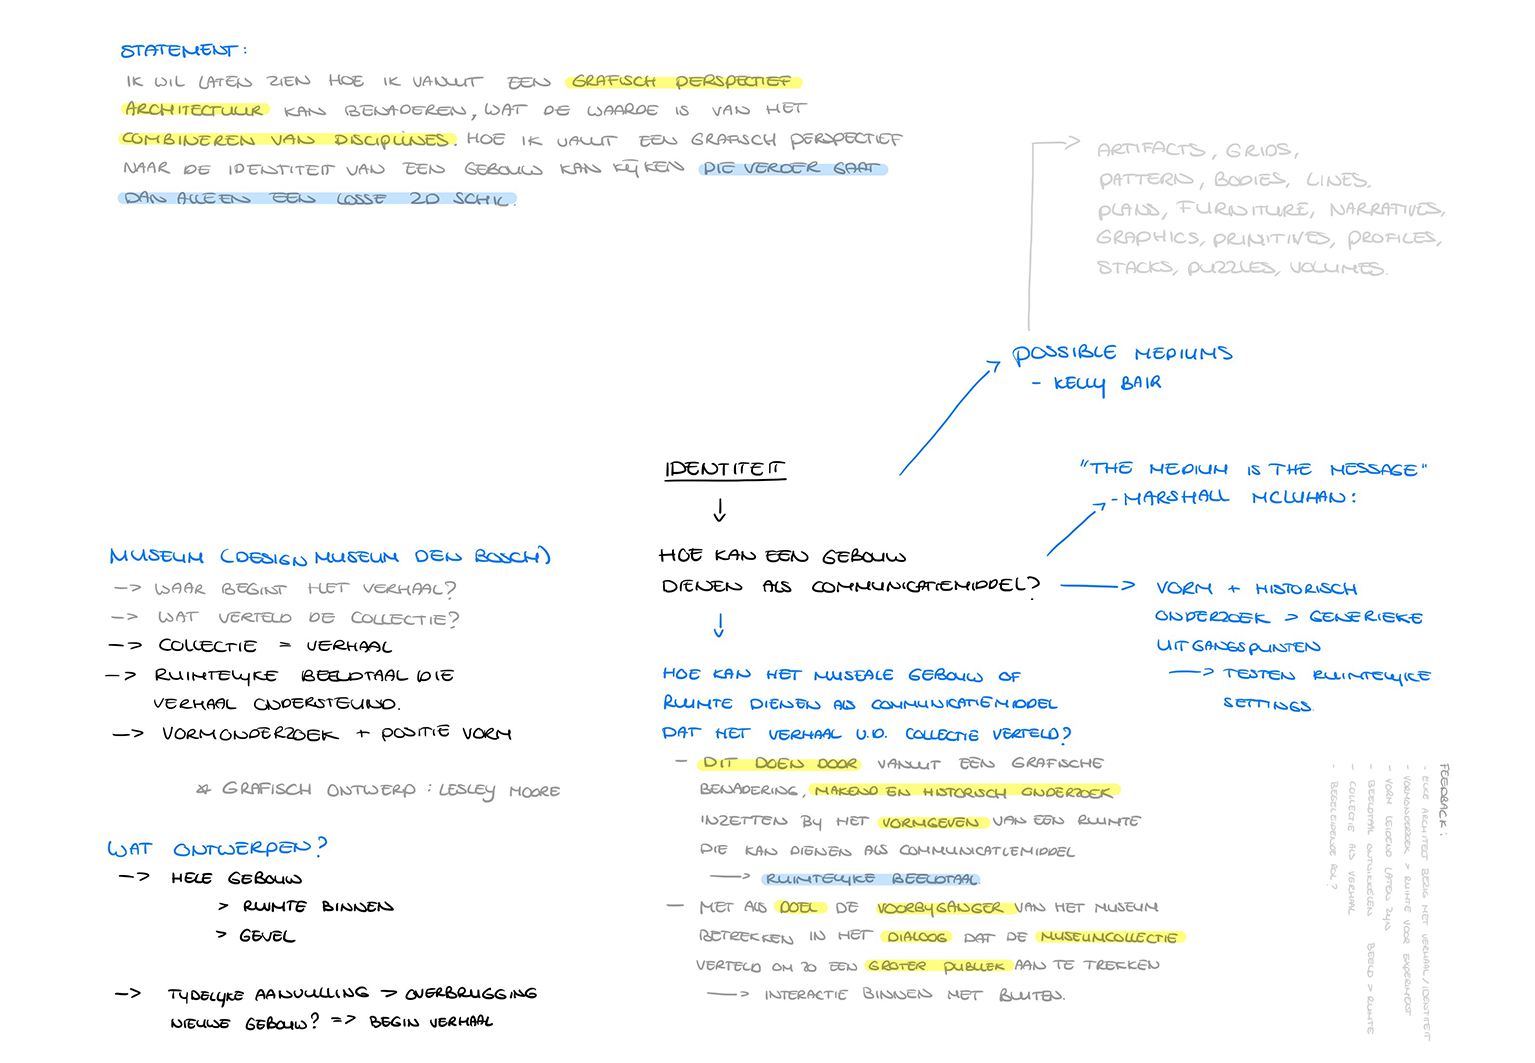 STATEMENT:
IK WIL LATEN ZIEN HOE IK VANUIT EEN GRAFISCH PERSPECTIEF
ARCHITECTUUR KAN BENADEREN, WAT DE WAARDE IS VAN HET
COMBINEREN VAN DISCIPLINES. HOE IK VANUIT EEN GRAFISCH PERSPECTIEF
NAAR DE IDENTITEIT VAN EEN GEBOUW KAN KIJKEN DIE VERDER GAAT
DAN ALLEEN EEN LOSSE 2D SCHIL.
ARTIFACTS, GRIDS,
PATTERN, BODIES, LINES.
PLANS, FURNITURE, NARRATIVES,
GRAPHICS, PRIMITIVES, PROFILES,
STACKS, PUZZLES, VOLUMES.
POSSIBLE MEDIUMS
- KELLY BAIR
IDENTITEIT
"THE MEDIUM IS THE MESSAGE"
- MARSHALL MCLUHAN:
HOE KAN EEN GEBOUW
DIENEN ALS COMMUNICATIEMIDDEL?
VORM + HISTORISCH
ONDERZOEK > GENERIEKE
UITGANGSPUNTEN
—> TESTEN RUIMTELIJKE
SETTINGS
MUSEUM (DESIGN MUSEUM DEN BOSCH)
—> WAAR BEGINT HET VERHAAL?
—> WAT VERTELD DE COLLECTIE?
—> COLLECTIE = VERHAAL
—> RUIMTELIJKE BEELDTAAL DIE
VERHAAL ONDERSTEUND.
—> VORMONDERZOEK + POSITIE VORM
* GRAFISCH ONTWERP: LESLEY MOORE
WAT ONTWERPEN?
—> HELE GEBOUW
> RUIMTE BINNEN
> GEVEL
—> TIJDELIJKE AANVULLING > OVERBRUGGING
NIEUWE GEBOUW? => BEGIN VERHAAL
HOE KAN HET MUSEALE GEBOUW OF
RUIMTE DIENEN ALS COMMUNICATIEMIDDEL
DAT HET VERHAAL V.D. COLLECTIE VERTELD?
- DIT DOEN DOOR VANUIT EEN GRAFISCHE
BENADERING, MAKEND EN HISTORISCH ONDERZOEK
INZETTEN BIJ HET VORMGEVEN VAN EEN RUIMTE
DIE KAN DIENEN ALS COMMUNICATIEMIDDEL
—> RUIMTELIJKE BEELDTAAL
- MET ALS DOEL DE VOORBIJGANGER VAN HET MUSEUM
BETREKKEN IN HET DIALOOG DAT DE MUSEUMCOLLECTIE
VERTELD OM ZO EEN GROTER PUBLIEK AAN TE TREKKEN
—> INTERACTIE BINNEN MET BUITEN.
FEEDBACK:
- ELKE ARCHITECT BEZIG MET VERHAAL/IDENTITEIT
- VORMONDERZOEK > RUIMTE VOOR EXPERIMENT
- VORM LEIDEND LATEN ZIJN
- BEELDTAAL ONTWIKKELEN BEELD > RUIMTE
- COLLECTIE ALS VERHAAL
- BEGELEIDENDE ROL?